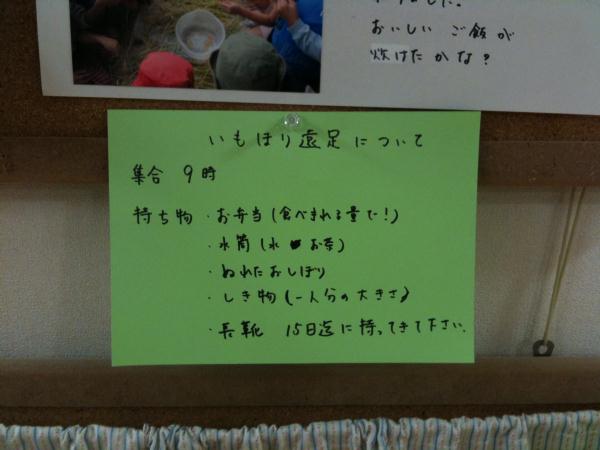 おいしい ご飯が
炊けたかな?
いもほり遠足について
集合 9時
持ち物 ・お弁当(食べきれる量で!)
・水筒(水 お茶)
・ぬれたおしぼり
・しき物(一人分の大きさ)
・長靴 15日迄に持ってきて下さい。